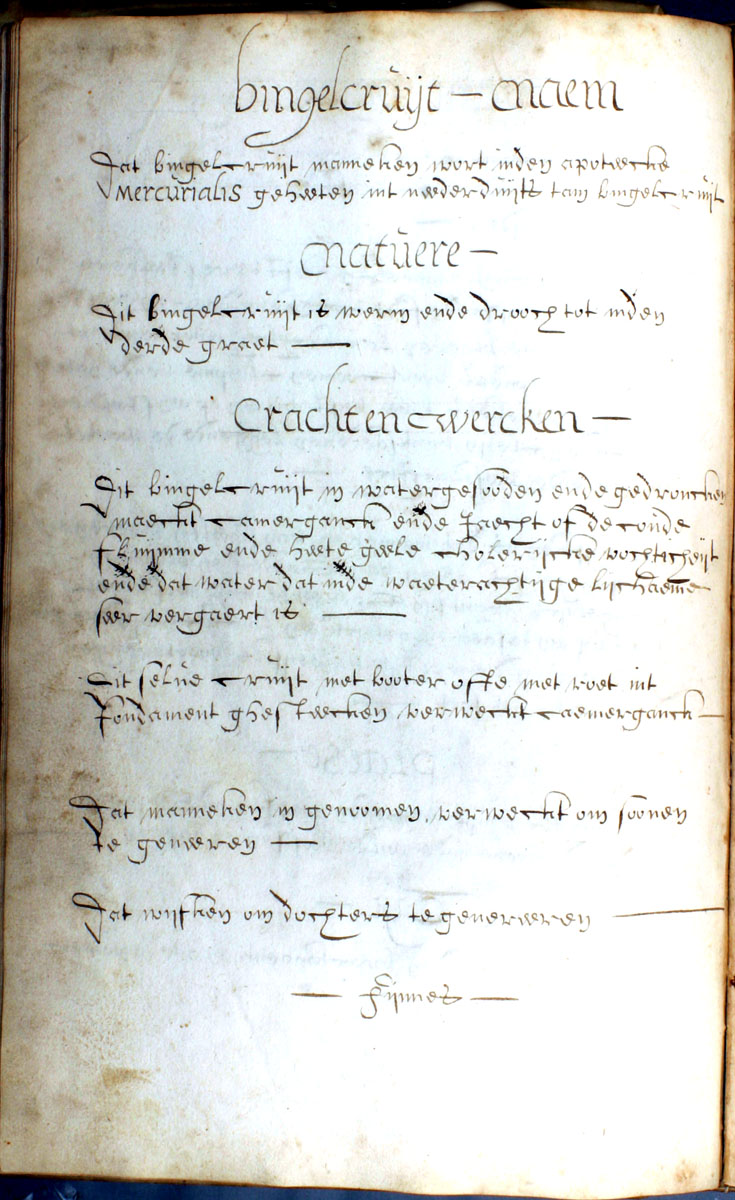 bingelcruijt – Naem
Dat bingelcruijt manneken wort inden apoteecke
Mercurialis geheeten int neederduijts tam bingelcruijt
Natuere –
Dit bingelcruijt is werm ende drooch tot inden
derde graet —
Crachten wercken –
Dit bingelcruijt in watergesooden ende gedroncken
maeckt camerganck ende Jaecht of de coude
fluijmme ende heete geele cholerijcke vochticheijt
ende dat water dat inde waeterachtijge lijchaeme
seer vergaert is —
Dit selve cruijt met booter offe met roet int
fondament ghesteecken verweckt caemerganck –
Dat manneken in genoomen verweckt om soonen
te generen —
Dat wijfken om dochters te genereren —
— Fijnnes —